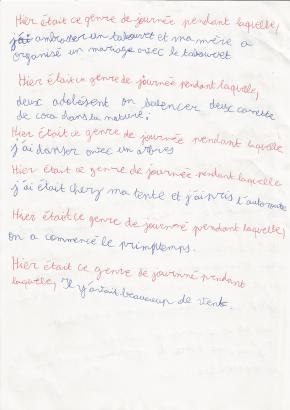 Hier était ce genre de journée pendant laquelle,
j'ai ambrasser un tabouret et ma mère a
organisé un mariage avec le tabouret
Hier était ce genre de journée pendant laquelle,
deux adolésent on balencer deux canette
de coca dans la nature.
Hier était ce genre de journée pendant laquelle
j'ai danser avec un arbres
Hier était ce genre de journée pendant laquelle
j'ai était cherz ma tente et j'ai pris l'autoroute
Hier était ce genre de journée pendant laquelle,
on a commencé le primptemps.
Hier était ce genre de journné pendant
laquelle, Il y'avait beaucoup de vents.